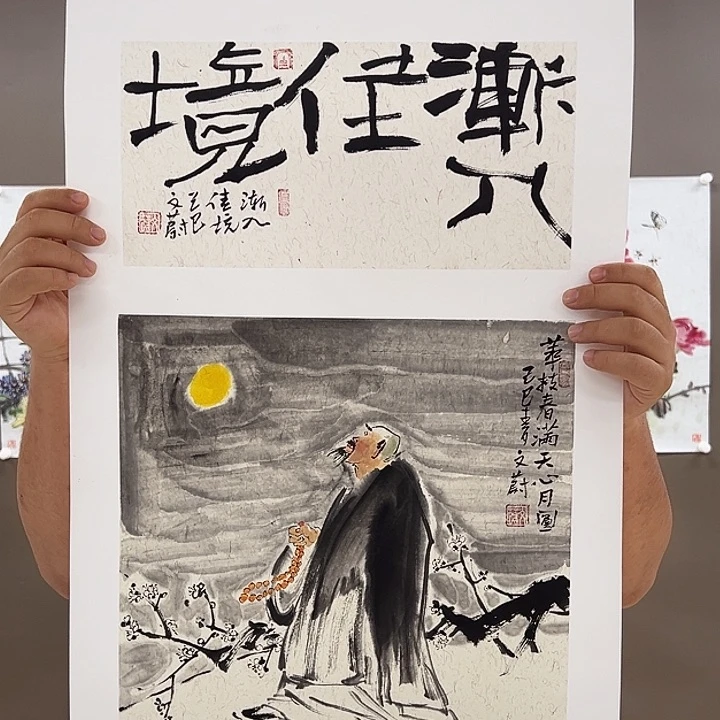 漸入佳境
漸入
佳境
乙巳
文蔚
華枝春滿天心月圓
乙巳
文蔚